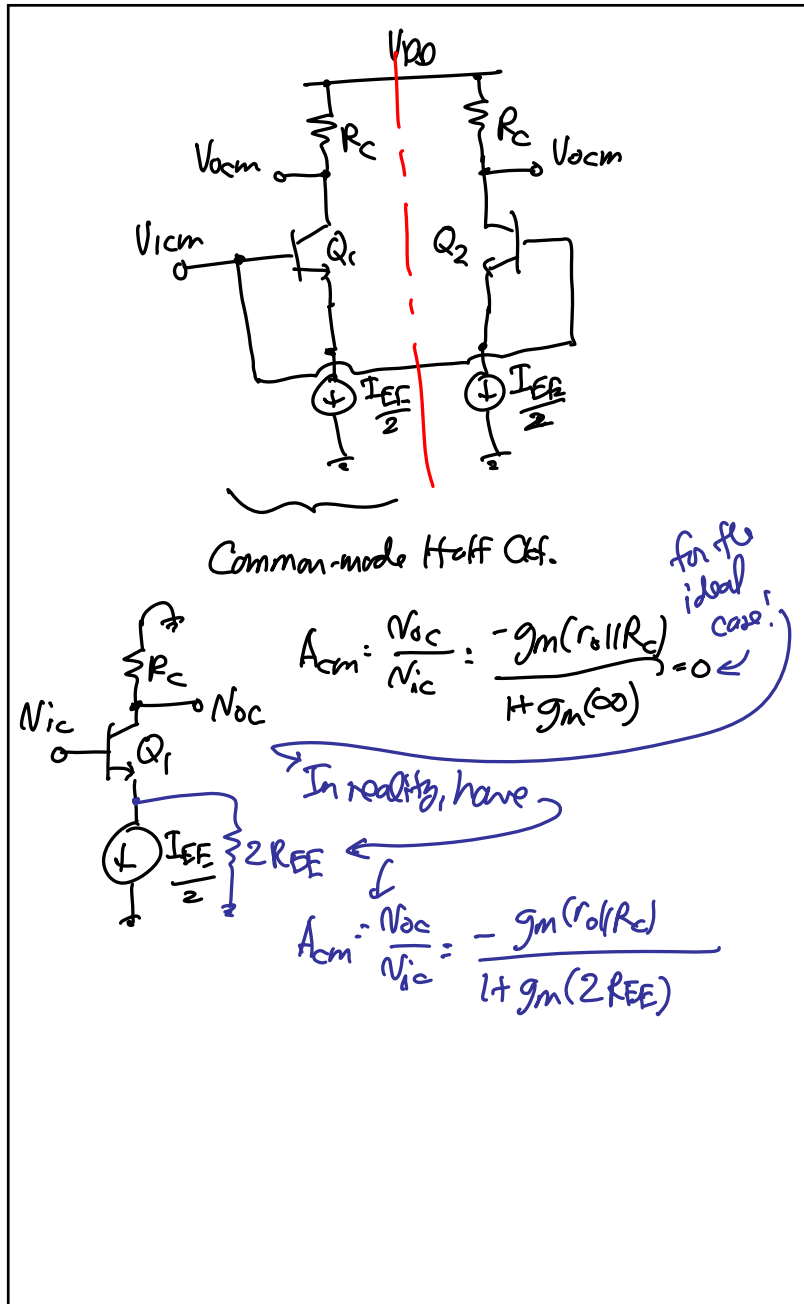 V_DD
R_C R_C
V_ocm V_ocm
V_icm Q_1 Q_2
I_EE/2 I_EE/2
Common-mode Half Ckt.
for the
ideal
case!
R_C
v_ic v_oc
Q_1
A_cm = v_oc/v_ic = -g_m(r_o||R_C)/(1+g_m(∞)) = 0
In reality, have
I_EE/2 2R_EE
A_cm = v_oc/v_ic = -g_m(r_o||R_C)/(1+g_m(2R_EE))